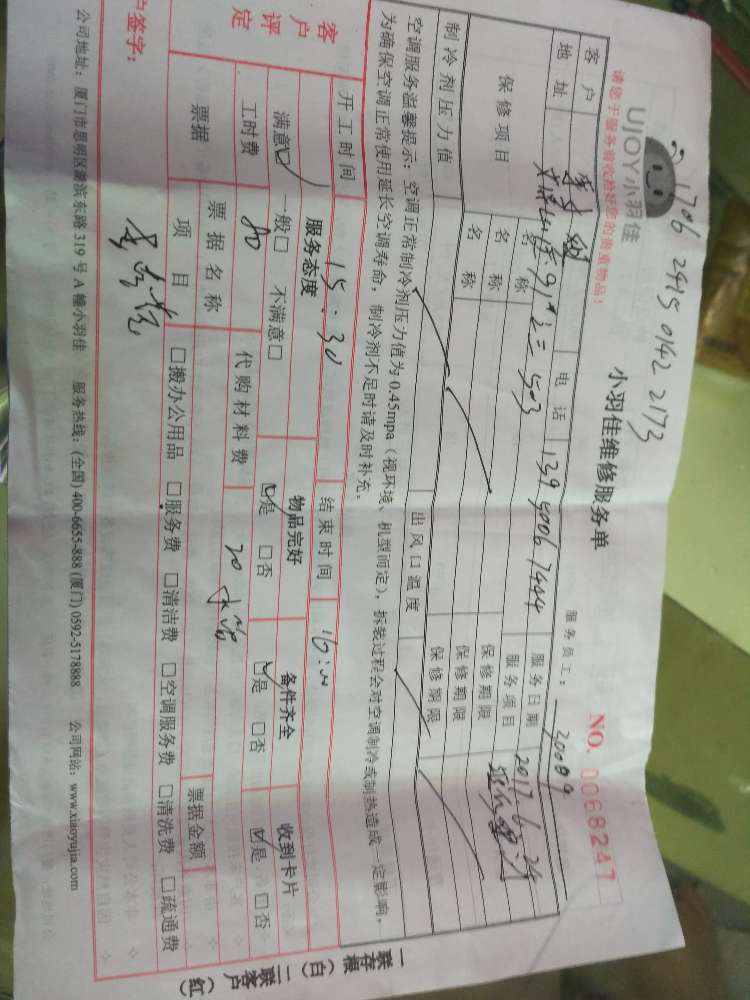 1706 2415 0142 2173
UJOY小羽佳
小羽佳维修服务单
NO. 0068247
请您于服务前收拾好您的贵重物品!
服务员工: 20089
客户 电话 139 5006 7444 服务日期 2017.6.24
地址 91# 之二 503 服务项目
保修项目 名称 保修期限
名称 保修期限
名称 保修期限
制冷剂压力值 出风口温度
空调服务温馨提示: 空调正常制冷剂压力值为0.45mpa(视环境、机型而定), 拆装过程会对空调制冷或制热造成一定影响,
为确保空调正常使用延长空调寿命, 制冷剂不足时请及时补充。
开工时间 15:30 结束时间 16:00
客户评定 服务态度 物品完好 备件齐全 收到卡片
满意☑ 一般□ 不满意□ ☑是 □否 ☑是 □否 ☑是 □否
工时费 80 代购材料费 20
票据 票据名称 票据金额
项目 □搬办公用品 □服务费 □清洁费 □空调服务费 □清洗费 □疏通费
户签字:
公司地址: 厦门市思明区湖滨东路319号A幢小羽佳 服务热线: (全国) 400-6655-888 (厦门) 0592-5178888 公司网站: www.xiaoyujia.com
一联存根(白) 二联客户(红)